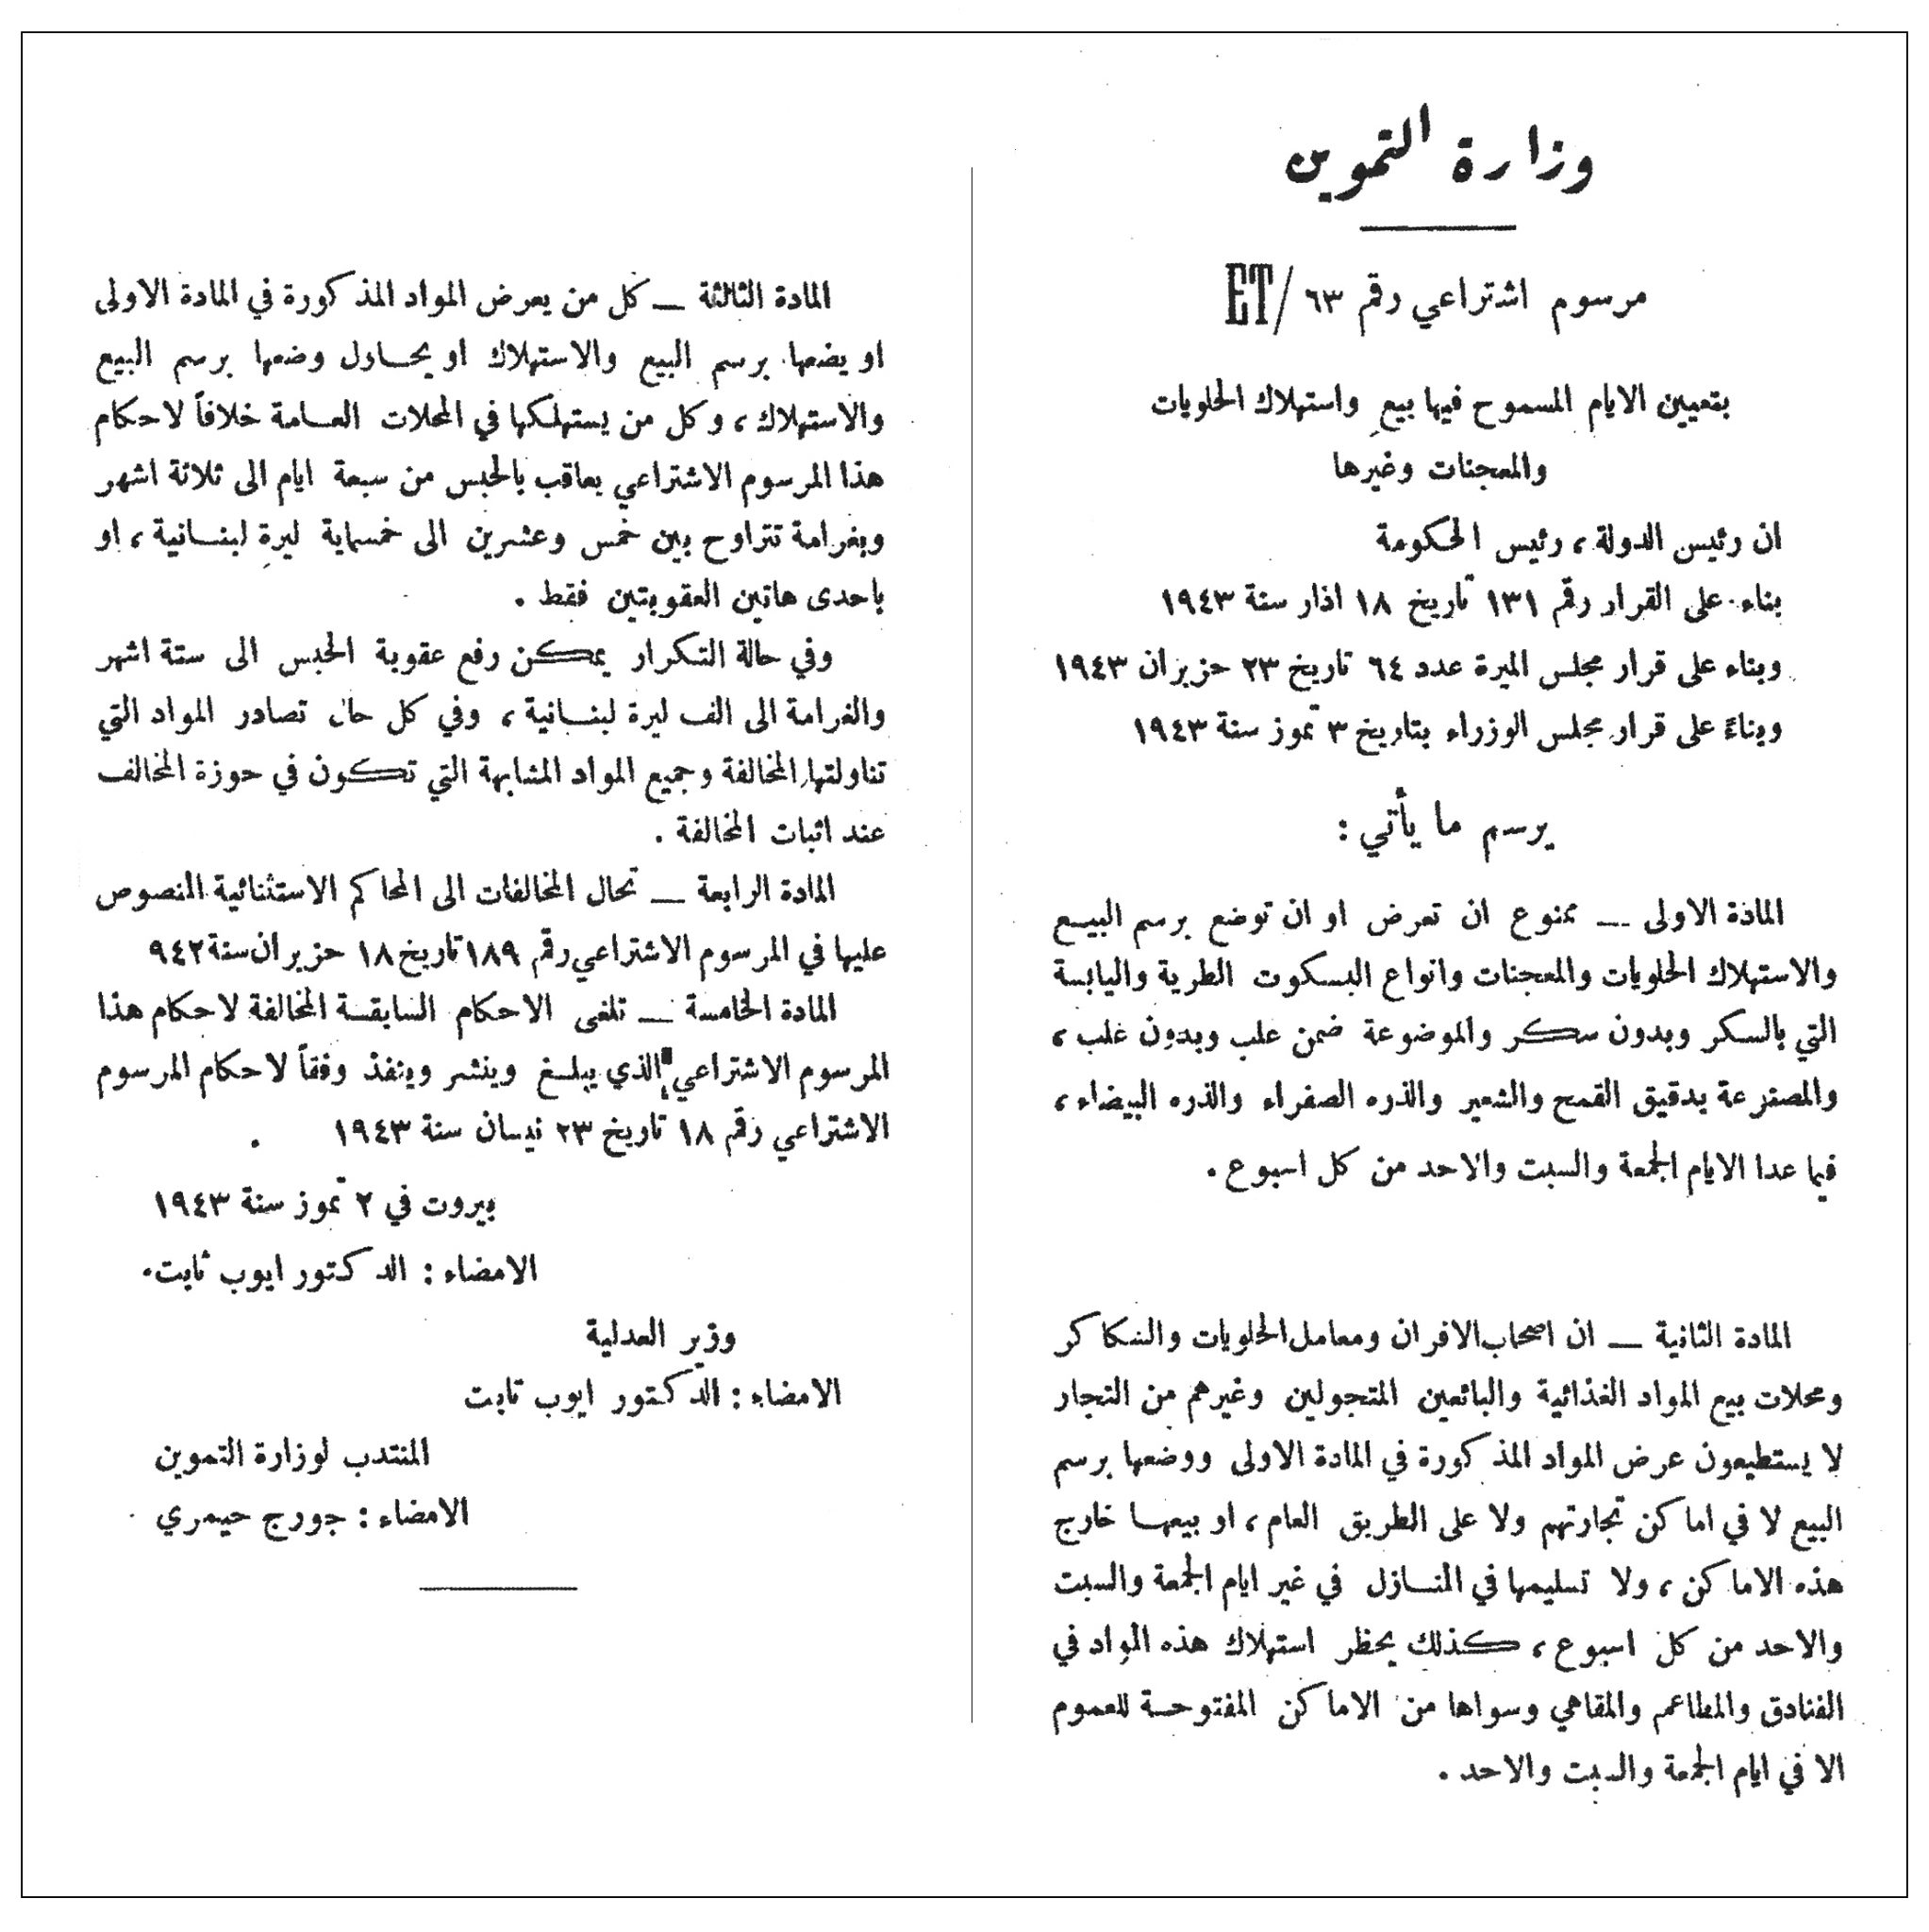 وزارة التموين
مرسوم اشتراعي رقم ٦٣ /ET
بتعيين الايام المسموح فيها بيع واستهلاك الحلويات
والمعجنات وغيرها
ان رئيس الدولة، رئيس الحكومة
بناء على القرار رقم ١٣١ تاريخ ١٨ اذار سنة ١٩٤٣
وبناء على قرار مجلس الميرة عدد ٦٤ تاريخ ٢٣ حزيران ١٩٤٣
وبناءً على قرار مجلس الوزراء بتاريخ ٣ تموز سنة ١٩٤٣
يرسم ما يأتي :
المادة الاولى — ممنوع ان تعرض او ان توضع برسم البيع
والاستهلاك الحلويات والمعجنات وانواع البسكوت الطرية واليابسة
التي بالسكر وبدون سكر والموضوعة ضمن علب وبدون علب،
والمصنرعة بدقيق القمح والشعير والذره الصفراء والذره البيضاء،
فيما عدا الايام الجمعة والسبت والاحد من كل اسبوع .
المادة الثانية — ان اصحاب الافران ومعامل الحلويات والسكاكر
ومحلات بيع المواد الغذائية والبائعين المتجولين وغيرهم من التجار
لا يستطيعون عرض المواد المذكورة في المادة الاولى ووضعها برسم
البيع لا في اماكن تجارتهم ولا على الطريق العام، او بيعها خارج
هذه الاماكن، ولا تسليمها في المنازل في غير ايام الجمعة والسبت
والاحد من كل اسبوع، كذلك يحظر استهلاك هذه المواد في
الفنادق والمطاعم والمقاهي وسواها من الاماكن المفتوحة للعموم
الا في ايام الجمعة والسبت والاحد .
المادة الثالثة — كل من يعرض المواد المذكورة في المادة الاولى
او يضعها برسم البيع والاستهلاك او يحاول وضعها برسم البيع
والاستهلاك، وكل من يستهلكها في المحلات العامة خلافاً لاحكام
هذا المرسوم الاشتراعي يعاقب بالحبس من سبعة ايام الى ثلاثة اشهر
وبغرامة تتراوح بين خمس وعشرين الى خمسماية ليرة لبنانية، او
باحدى هاتين العقوبتين فقط .
وفي حالة التكرار يمكن رفع عقوبة الحبس الى ستة اشهر
والغرامة الى الف ليرة لبنانية، وفي كل حال تصادر المواد التي
تناولتها المخالفة وجميع المواد المشابهة التي تكون في حوزة المخالف
عند اثبات المخالفة .
المادة الرابعة — تحال المخالفات الى المحاكم الاستثنائية المنصوص
عليها في المرسوم الاشتراعي رقم ١٨٩ تاريخ ١٨ حزيران سنة ٩٤٢
المادة الخامسة — تلغى الاحكام السابقة المخالفة لاحكام هذا
المرسوم الاشتراعي الذي يبلغ وينشر وينفذ وفقاً لاحكام المرسوم
الاشتراعي رقم ١٨ تاريخ ٢٣ نيسان سنة ١٩٤٣ .
بيروت في ٢ تموز سنة ١٩٤٣
الامضاء : الدكتور ايوب ثابت
وزير العدلية
الامضاء : الدكتور ايوب ثابت
المنتدب لوزارة التموين
الامضاء : جورج حيمري